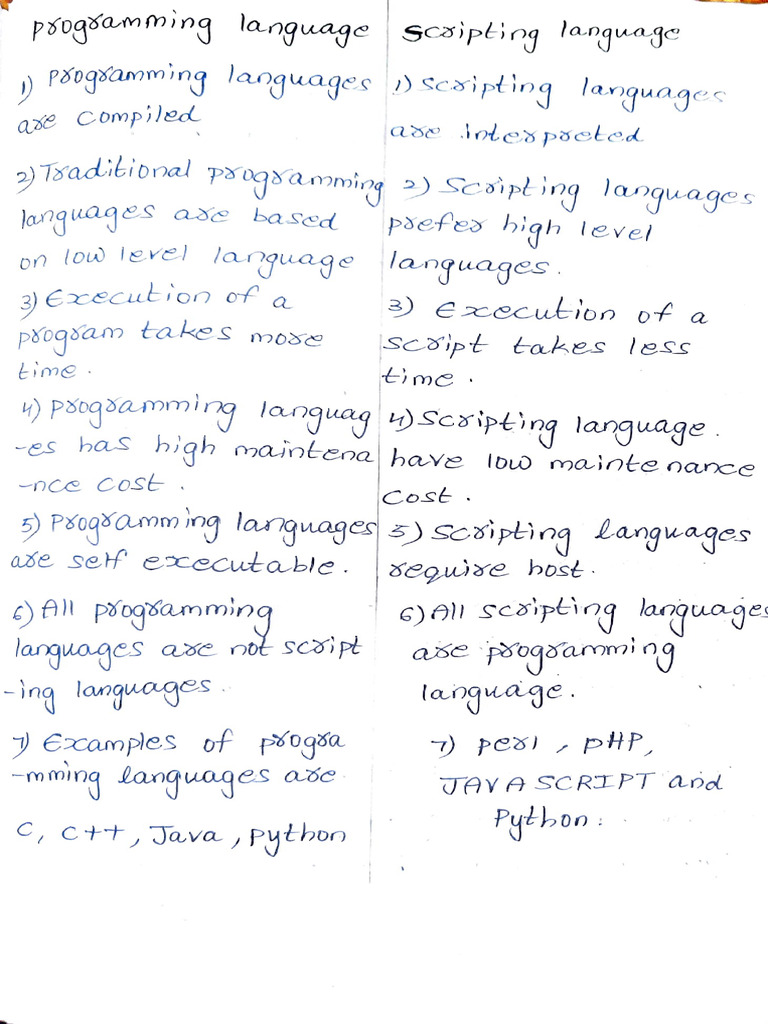 programming language
1) programming languages
are compiled
2) Traditional programming
languages are based
on low level language
3) Execution of a
program takes more
time.
4) programming languag
-es has high maintena
-nce cost.
5) Programming languages
are self executable.
6) All programming
languages are not script
-ing languages.
7) Examples of progra
-mming languages are
C, C++, Java, python
scripting language
1) scripting languages
are interpreted
2) Scripting languages
prefer high level
languages.
3) Execution of a
script takes less
time.
4) Scripting language.
have low maintenance
cost.
5) Scripting languages
require host.
6) All scripting languages
are programming
language.
7) perl, pHP,
JAVASCRIPT and
Python.